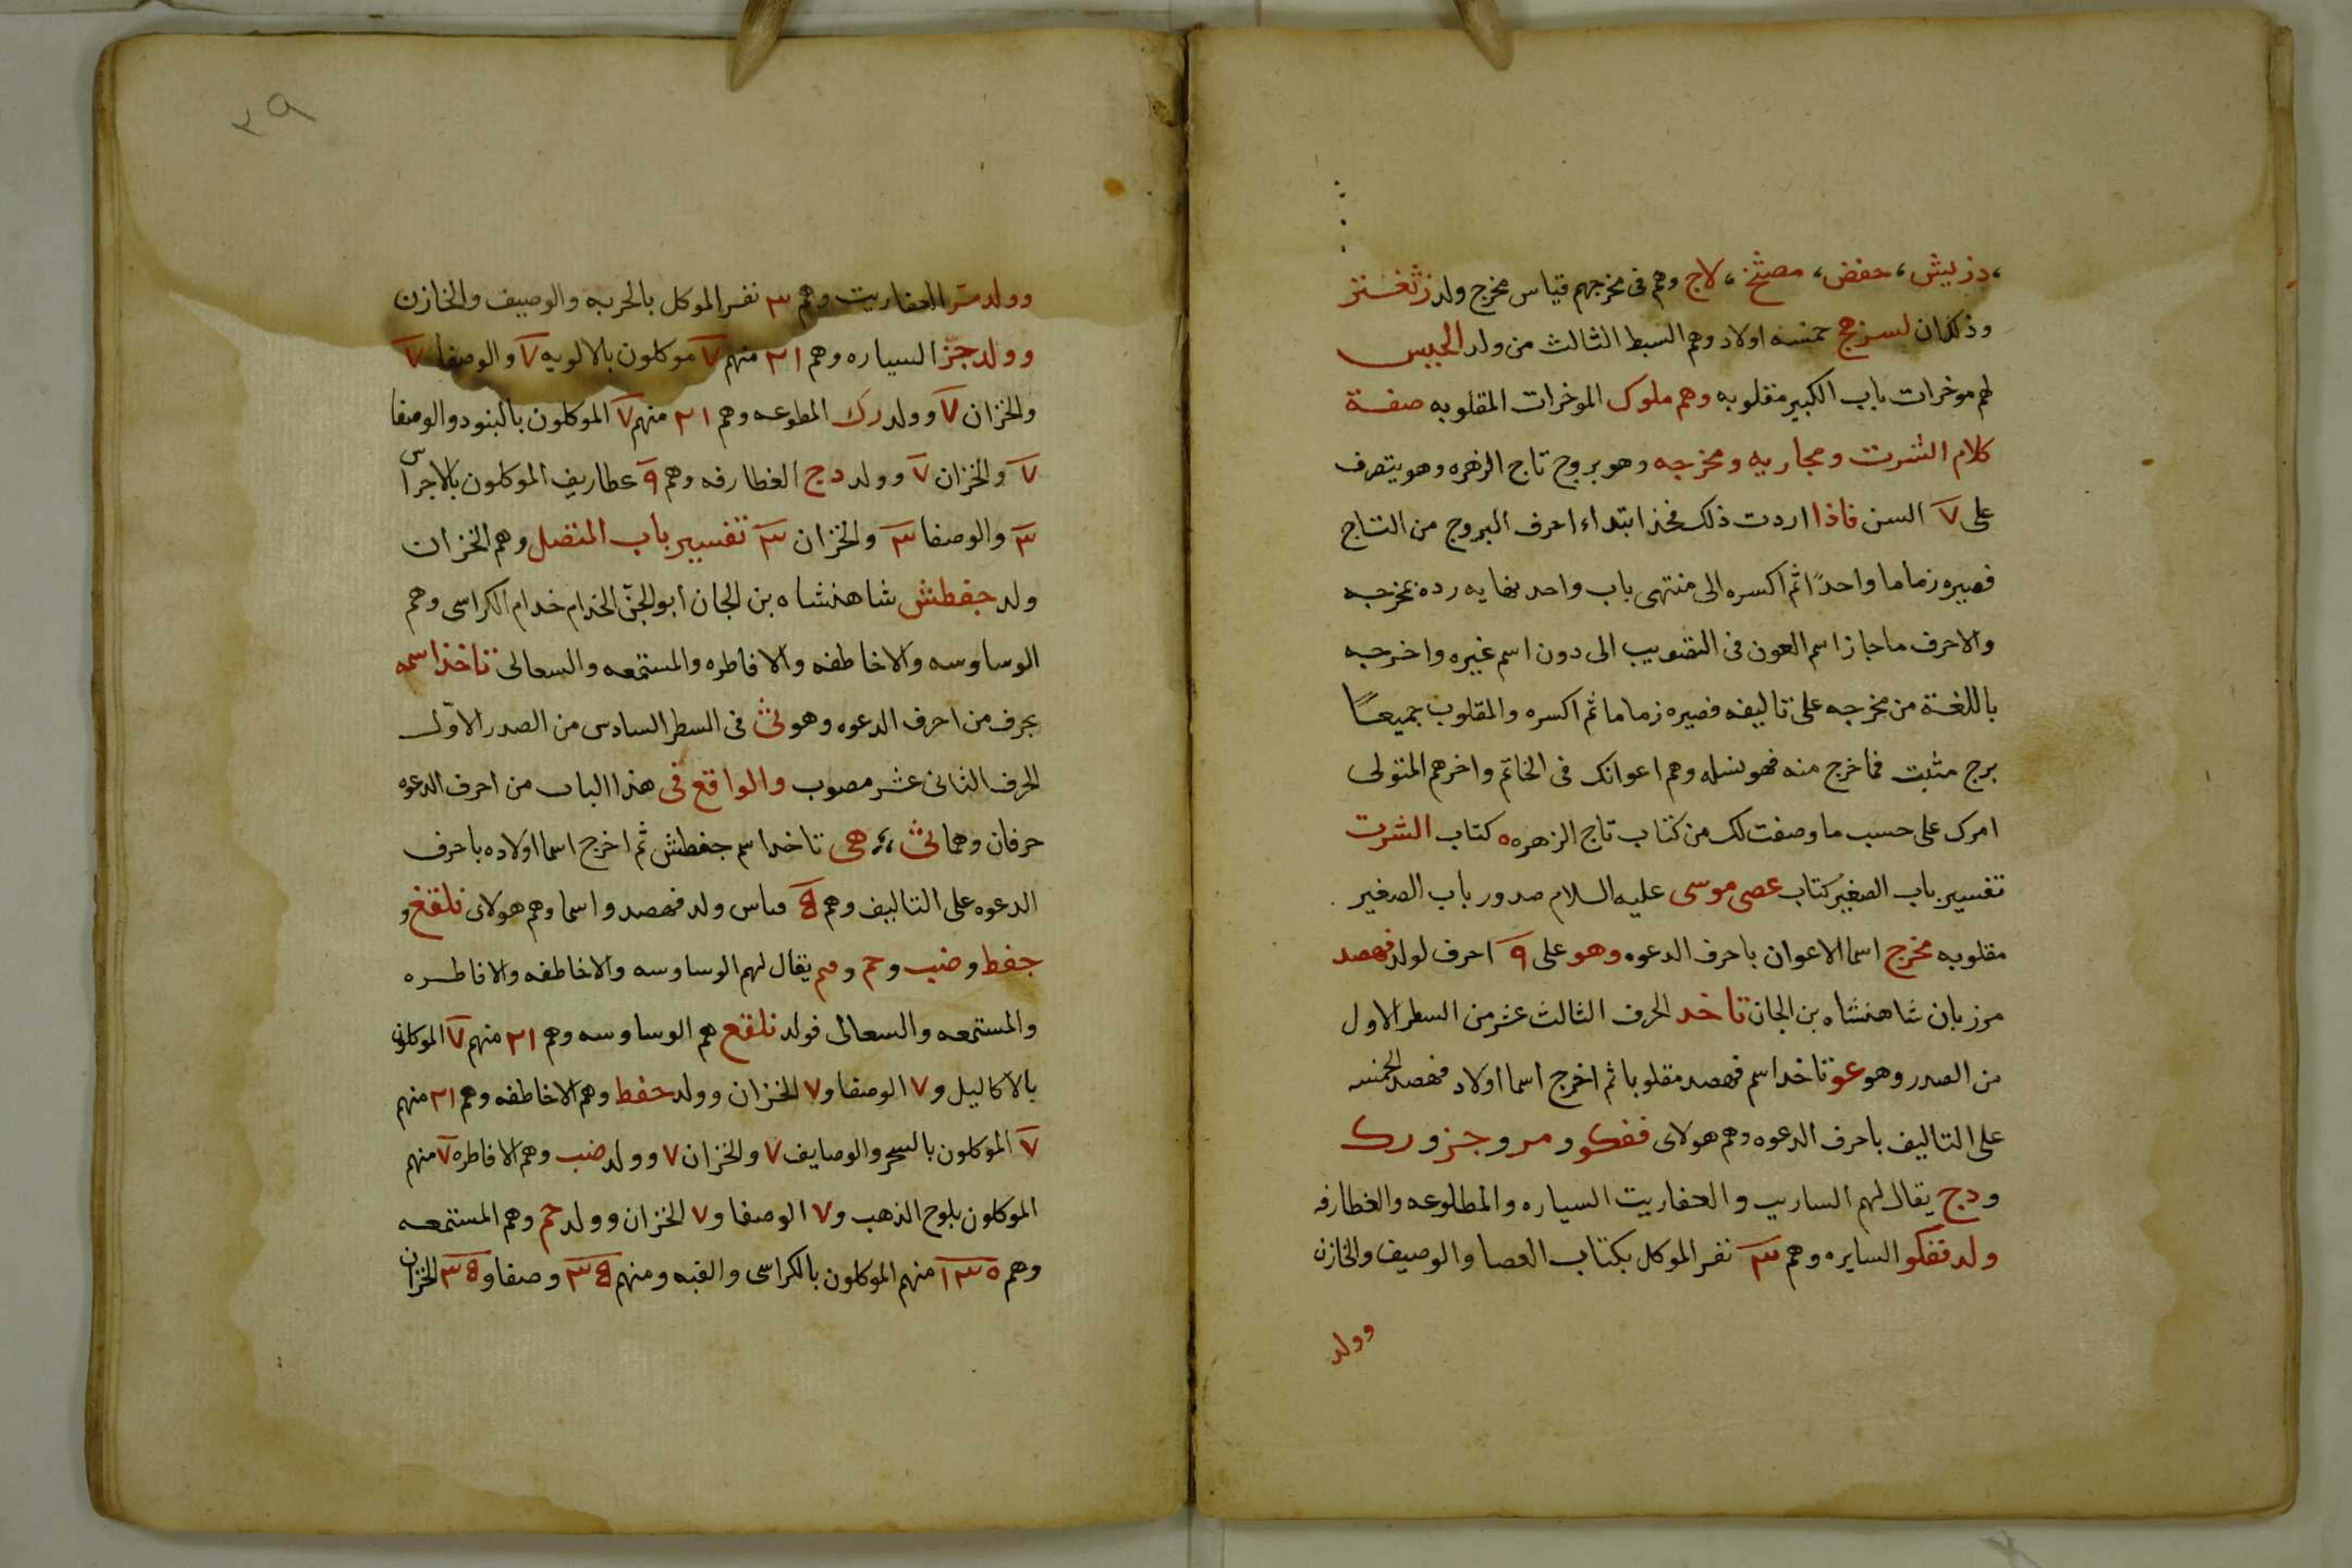 ، دزيش ، حفض ، مصثخ ، لاج وهم فى مخرجهم قياس مخرج ولد
وذلك ان لسزهج خمسه اولاد وهم السبط الثالث من ولد الحبيس
لهم موخرات باب الكبير مقلوبه وهم ملوك الموخرات المقلوبه صفة
كلام الشرت ومجاريه ومخرجه وهو بروج تاج الزهره وهو يتصرف
على ٧ السن فاذا اردت ذلك فخذ ابتداء احرف البروج من التاج
فصيره زماما واحدًا ثم اكسره الى منتهى باب واحد نهايه رده بمخرجه
والاحرف ما جاز اسم العون فى التصويب الى دون اسم غيره واخرجه
باللغة من مخرجه على تاليفه فصيره زماما ثم اكسره والمقلوب جميعًا
برج مثبت فما خرج منه فهو نسله وهم اعوانك فى الخاتم واخرهم المتولى
امرك على حسب ما وصفت لك من كتاب تاج الزهره ٥ كتاب الشرت
تفسير باب الصغير كتاب عصى موسى عليه السلام صدور باب الصغير
مقلوبه مخرج اسما الاعوان باحرف الدعوه وهو على ٩ احرف لولد فهصد
مرزبان شاهنشاه بن الجان تاخد الحرف الثالث عشر من السطر الاول
من الصدر وهو عو تاخد اسم فهصد مقلوبا ثم اخرج اسما اولاد فهصد الخمسه
على التاليف باحرف الدعوه وهم هولاى قفكو و مر و جز و رك
و دج يقال لهم الساريب والعفاريت السياره والمطلوعه والغطارفه
ولد قفكو السايره وهم ٣ نفر الموكل بكتاب العصا والوصيف والخازن
وولد
٣٩
وولد متر العفاريت وهم ٣ نفر الموكل بالحربه والوصيف والخازن
وولد جز السياره وهم ٢١ منهم ٧ موكلون بالالويه ٧ والوصفا ٧
والخزان ٧ وولد رك المطوعه وهم ٢١ منهم ٧ الموكلون بالبنود والوصفا
٧ والخزان ٧ وولد دج الغطارفه وهم ٩ عطاريف الموكلون بالاجراس
٣ والوصفا ٣ والخزان ٣ تفسير باب المتصل وهم الخزان
ولد جفطش شاهنشاه بن الجان ابو الجنّ الخدام خدام الكراسى وهم
الوساوسه والاخاطفه والافاطره والمستمعه والسعالى تاخذ اسمه
بحرف من احرف الدعوه وهو فى السطر السادس من الصدر الاوّل
الحرف الثانى عشر مصوب والواقع فى هذا الباب من احرف الدعوه
حرفان وهما هى تاخدا اسم جفطش ثم اخرج اسما اولاده باحرف
الدعوه على التاليف وهم ولد فهصد واسما وهم هولاى نلقغ و
جفط و ضب و حم و مم يقال لهم الوساوسه والاخاطفه والافاطره
والمستمعه والسعالى فولد نلقع هم الوساوسه وهم ٢١ منهم ٧ الموكلون
بالاكاليل و ٧ الوصفا و ٧ الخزان وولد حفط وهم الاخاطفه وهم ٢١ منهم
٧ الموكلون بالسحر والوصايف ٧ والخزان ٧ وولد ضب وهم الافاطره ٧ منهم
الموكلون بلوح الذهب و ٧ الوصفا و ٧ الخزان وولد حم وهم المستمعه
وهم ١٣٥ منهم الموكلون بالكراسى والقبه ومنهم وصفا و الخزان